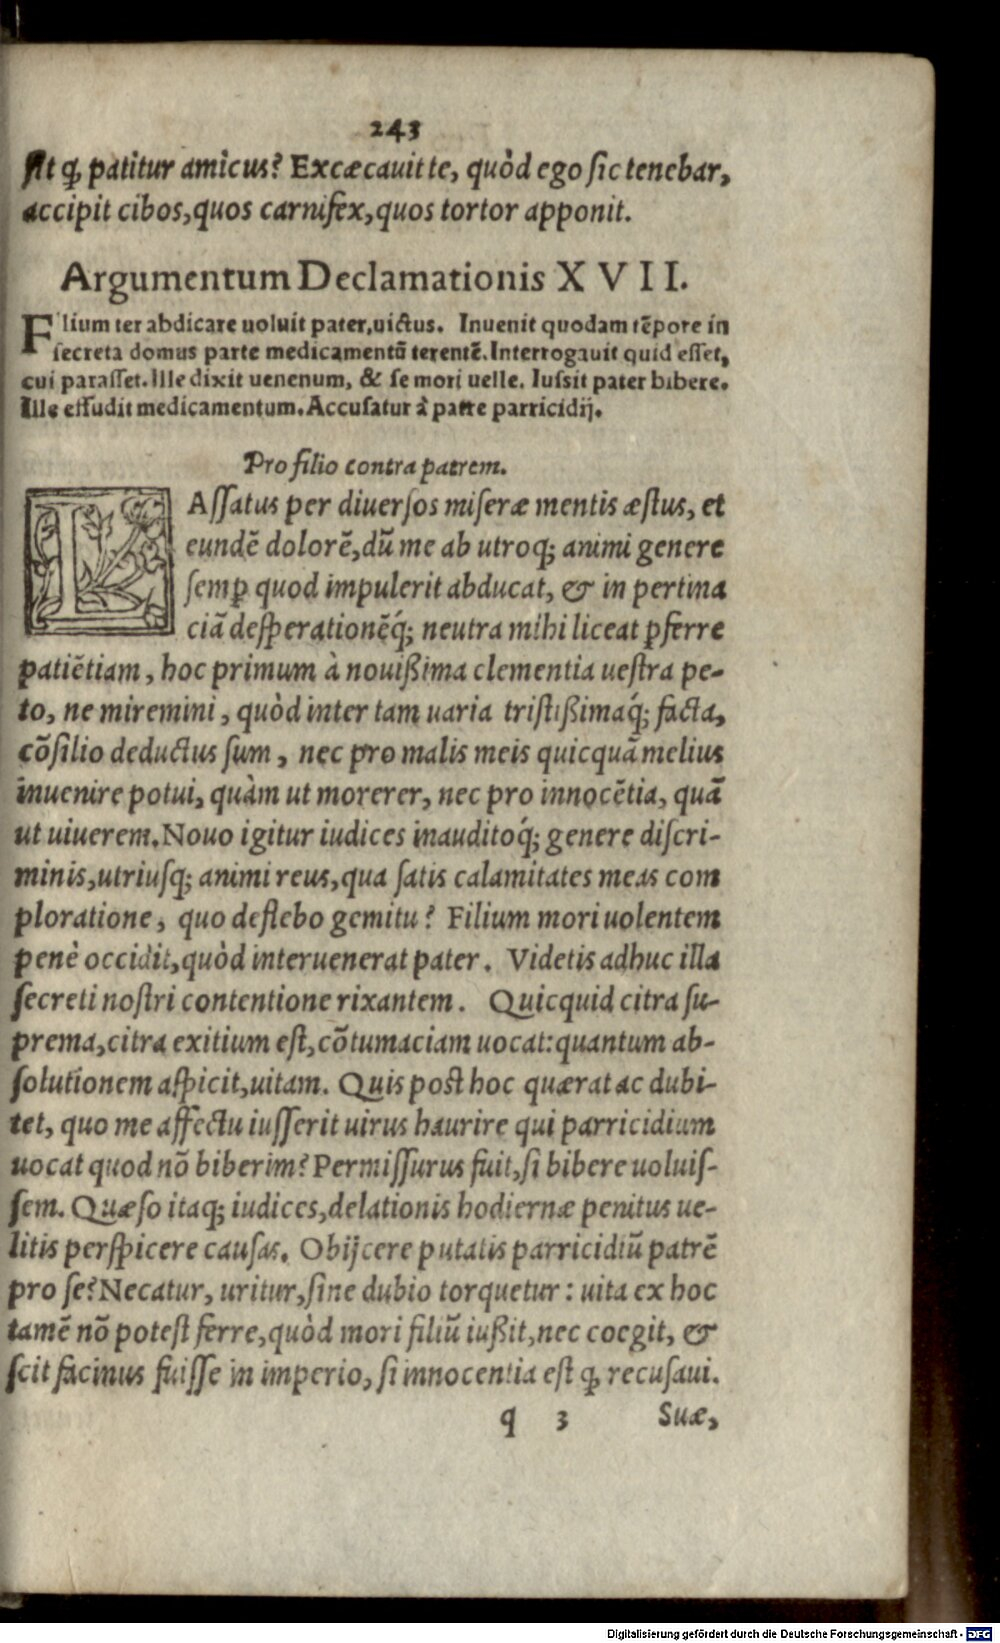 243
sit q̃ patitur amicus? Excæcauit te, quòd ego sic tenebar,
accipit cibos, quos carnifex, quos tortor apponit.
Argumentum Declamationis XVII.
Filium ter abdicare uoluit pater, uictus. Inuenit quodam tẽpore in
secreta domus parte medicamentũ terentẽ. Interrogauit quid esset,
cui parasset. Ille dixit uenenum, & se mori uelle. Iussit pater bibere.
Ille effudit medicamentum. Accusatur à patre parricidij.
Pro filio contra patrem.
LAſſatus per diuerſos miſeræ mentis æſtus, et
eundẽ dolorẽ, dũ me ab utroq; animi genere
ſemp̱ quod impulerit abducat, & in pertina
ciã deſperationẽq́; neutra mihi liceat p̱ferre
patiẽtiam, hoc primum à nouißima clementia ueſtra pe-
to, ne miremini, quòd inter tam uaria triſtißimaq́; facta,
cõſilio deductus ſum, nec pro malis meis quicquã melius
inuenire potui, quàm ut morerer, nec pro innocẽtia, quã
ut uiuerem. Nouo igitur iudices inauditoq́; genere diſcri-
minis, utriuſq; animi reus, qua ſatis calamitates meas com
ploratione, quo deflebo gemitu? Filium mori uolentem
penè occidit, quòd interuenerat pater. Videtis adhuc illa
ſecreti noſtri contentione rixantem. Quicquid citra ſu-
prema, citra exitium eſt, cõtumaciam uocat: quantum ab-
ſolutionem aſpicit, uitam. Quis poſt hoc quærat ac dubi-
tet, quo me affectu iuſſerit uirus haurire qui parricidium
uocat quod nõ biberim? Permiſſurus fuit, ſi bibere uoluiſ-
ſem. Quæſo itaq; iudices, delationis hodiernæ penitus ue-
litis perſpicere cauſas. Obijcere putatis parricidiũ patrẽ
pro ſe? Necatur, uritur, ſine dubio torquetur: uita ex hoc
tamẽ nõ poteſt ferre, quòd mori filiũ iußit, nec coegit, &
ſcit facinus fuiſſe in imperio, ſi innocentia eſt q̃ recuſaui.
q 3 Suæ,
Digitalisierung gefördert durch die Deutsche Forschungsgemeinschaft - DFG